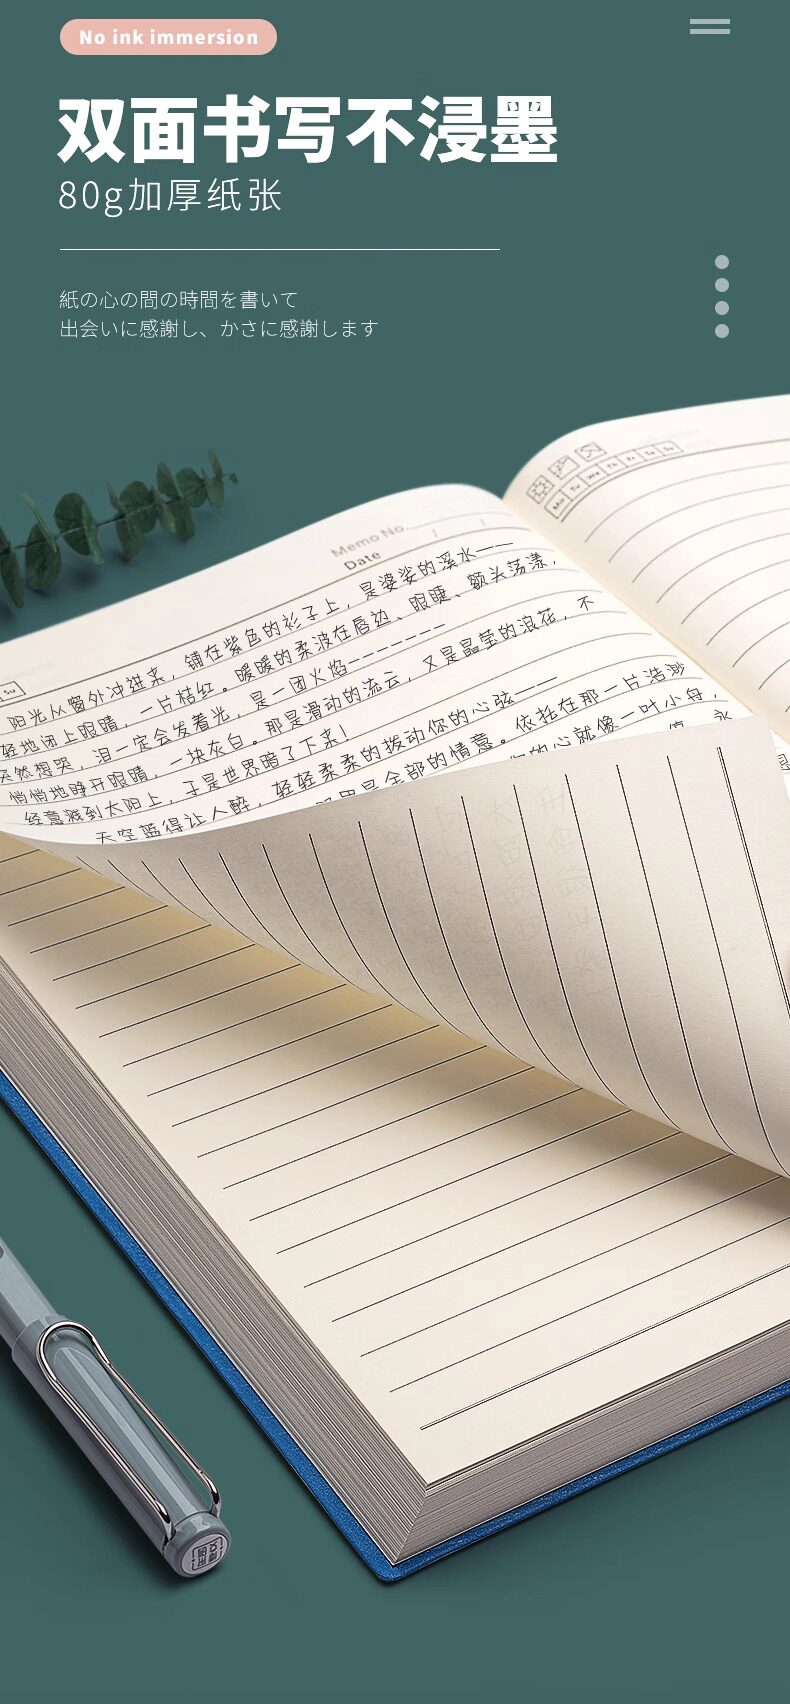 No ink immersion
双面书写不浸墨
80g加厚纸张
紙の心の間の時間を書いて
出会いに感謝し、かさに感謝します
Memo No.
Date / /
Mo Tu We Th Fr Sa Su
Su
阳光从窗外冲进来，铺在紫色的衫子上，是婆娑的溪水——
轻地闭上眼睛，一片桔红。暖暖的柔波在唇边、眼睫、额头荡漾，
突然想哭，泪一定会发着光，是一团火焰-------
悄悄地睁开眼睛，一块灰白。那是滑动的流云，又是晶莹的浪花，不
经意溅到太阳上，于是世界暗了下来！
天空蓝得让人醉，轻轻柔柔的拨动你的心弦——
是全部的情意。依托在那一片浩渺
的心就像一叶小舟，